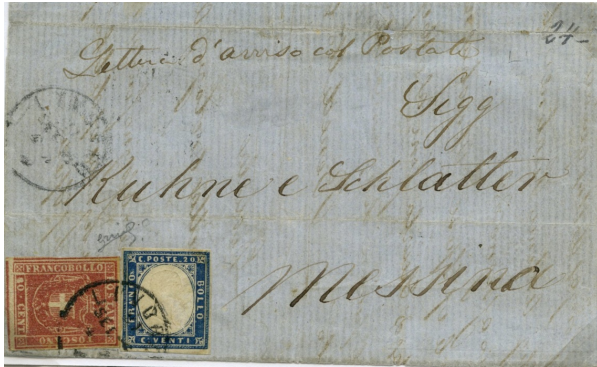 24-
Lettera d'avviso col Postale
Sigg
Kuhne e Schlatter
Messina
FRANCOBOLLO
40 CENT
TOSCANO
C. POSTE. 20
FRANCO
BOLLO
C. VENTI